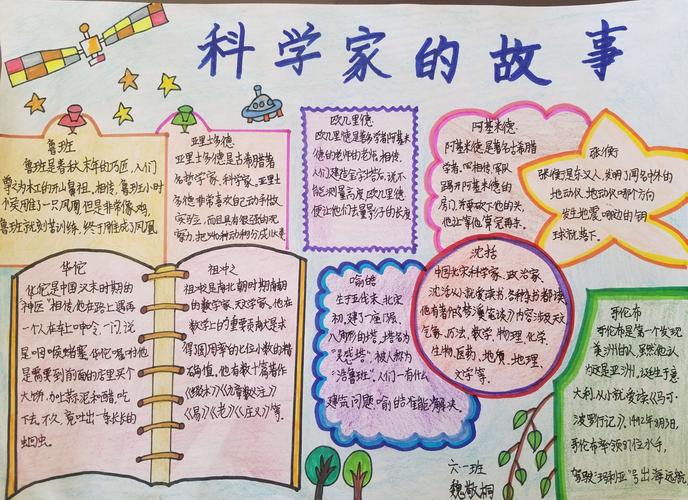 科学家的故事
鲁班
鲁班是春秋末年的巧匠,人们
尊为木工的开山鼻祖,相传,鲁班小时
个奖雕了一只凤凰,但是非常像鸡,
鲁班就刻苦训练,终于雕成了凤凰
亚里士多德
亚里士多德是古希腊著
名哲学家、科学家。亚里士
多德非常喜欢自己动手做
实验,而且有很强的观
察力,把540种动物分成
欧几里德
欧几里德是数学者阿基米
德的老师的老师,相传,
人们建造金字塔,说不
能测量高度,欧几里德
便让他们去量影子的长度
阿基米德
阿基米德是著名古希腊
学者,四相传,罗
踢开阿基米德的
房门,并要砍下他的头,
他让等他算完再杀。
张衡
张衡是东汉人,发明了闻名中外的
地动仪,地动仪哪个方向
发生地震,哪边的铜
球就落下。
华佗
华佗是中国汉末时期的
"神医"相传,他在路上遇再
一个人在车上呻吟,一问,说
是咽喉蛲塞,华佗嘱咐他
是需要到前面的店里买个
大饼,加上蒜泥和醋,吃
下去,不久,竟吐出一条长长的
蛔虫。
祖冲之
祖冲之是南北朝时期南朝
的数学家、天文学家,他在
数学上的重要贡献是求
得圆周率的七位小数的精
确值,他有数十篇著作
《缀术》《九章算义注》
《易》《老》《庄义》等。
喻皓
生于五代末,北宋
初,建了一座八层、
八角形的塔,塔名为
"灵感塔",被人称为
"活鲁班"。人们一有什么
建筑问题,喻皓准能解决。
沈括
中国北宋科学家、政治家,
沈括从小就爱读书,各种杂书都读,
他有著作《梦溪笔谈》内容涉及天文
气象、历法、数学、物理、化学
生物、医药、地质、地理、
文学等。
哥伦布
哥伦布是第一个发现
美洲的人,虽然他认
为这是亚洲,这生于意
大利,从小就爱读《马可·
波罗行记》,1492年8月3日,
哥伦布率领87位水手,
驾驶"玛利亚"号出海远航
六一班
魏敬桐